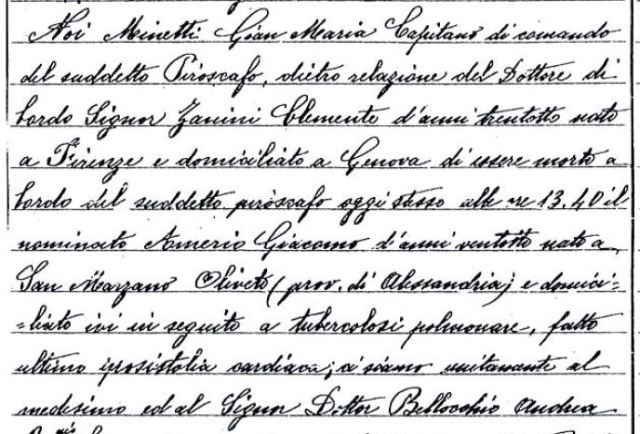 Noi Minetti Gian Maria Capitano di comando
del suddetto Piroscafo, dietro relazione del Dottore di
bordo Signor Zanini Clemente d'anni trentotto nato
a Firenze e domiciliato a Genova di essere morto a
bordo del suddetto piroscafo oggi stesso alle ore 13.40 il
nominato Amerio Giacomo d'anni ventotto nato a
San Marzano Oliveto (prov. di Alessandria) e domici=
=liato ivi in seguito a tubercolosi polmonare, fatto
ultimo iposistolia cardiaca; ci siamo unitamente al
medesimo ed al Signor Dottor Bellocchio Andrea